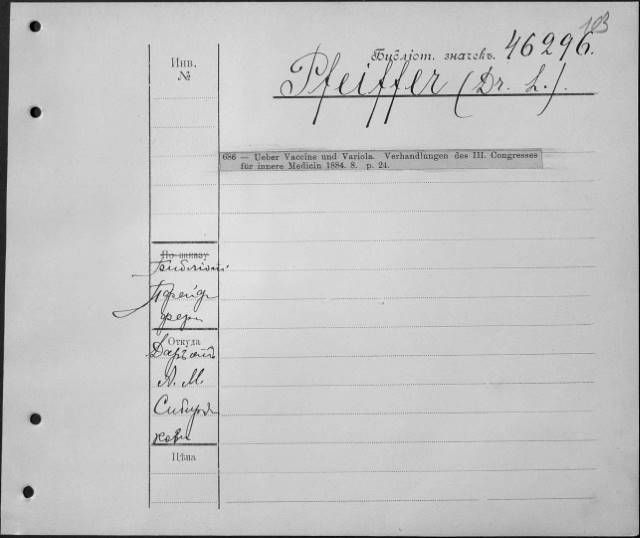 103
Библіот. значекъ. 46296.
Инв.
№
Pfeiffer (Dr. L.).
686 — Ueber Vaccine und Variola. Verhandlungen des III. Congresses
für innere Medicin 1884. 8. p. 24.
По заказу
Библіот.
Пфейф
фера
Откуда
Даръ отъ
А. М.
Сибиря
кова
Цѣна